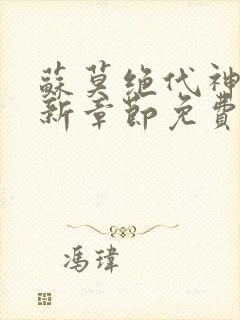 蘇莫绝代神
新章節免費
馮瑋